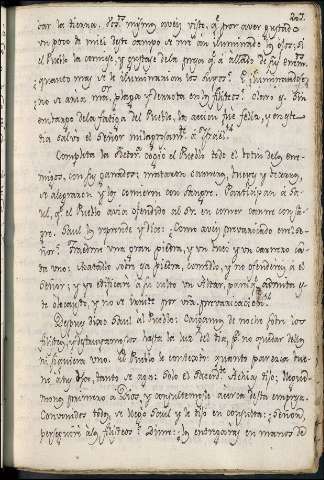 sar la tierra. Vos mismos aveis visto, q por aver gustado
un poco de miel deste campo se me an iluminado los ojos; si
el Pueblo la comiese, y gustase de la presa q á allado de sus enem.
quanto mas se le iluminarian los suyos? E iluminandose,
no se aria mor plaga y derrota en los filisteos? Claro y. Sin
embargo de la fatiga del Pueblo, la accion fue feliz, y en este
dia salvó el Señor milagrosamte á Israel.
Completa la Victoria cogió el Pueblo todo el botin de los ene-
migos, con sus ganados: mataron carneros, bueyes y terneros,
se alegraron y los comieron con sangre. Participan a Sa-
ul, q el Pueblo avia ofendido al Sr. en comer carne con sa-
gre. Saul los reprende y dice: Como aveis prevaricado en el Se-
ñor? Traedme una gran piedra, y un buey y un carnero ca-
da uno: matadlo sobre esa piedra, comedlo, y no ofendereis á el
Señor; y yo edificaré á su culto un Altar,
te de
Despues dixo Saul al Pueblo: Caigamos de noche sobre los
filisteos, y destruyamoslos hasta la luz del dia, q no quede dellos
ni siquiera uno. El Pueblo le contestó: quanto parezca bue-
no a tus ojos, tanto se aga: Solo el Sacerd. Achias dijo: Llegue-
monos primero a Dios, y consultemosle acerca desta empresa.
Convenidos todos, se llegó Saul y le dijo en consulta: Señor,
perseguiré á los filisteos? Dime: los entregarás en manos de